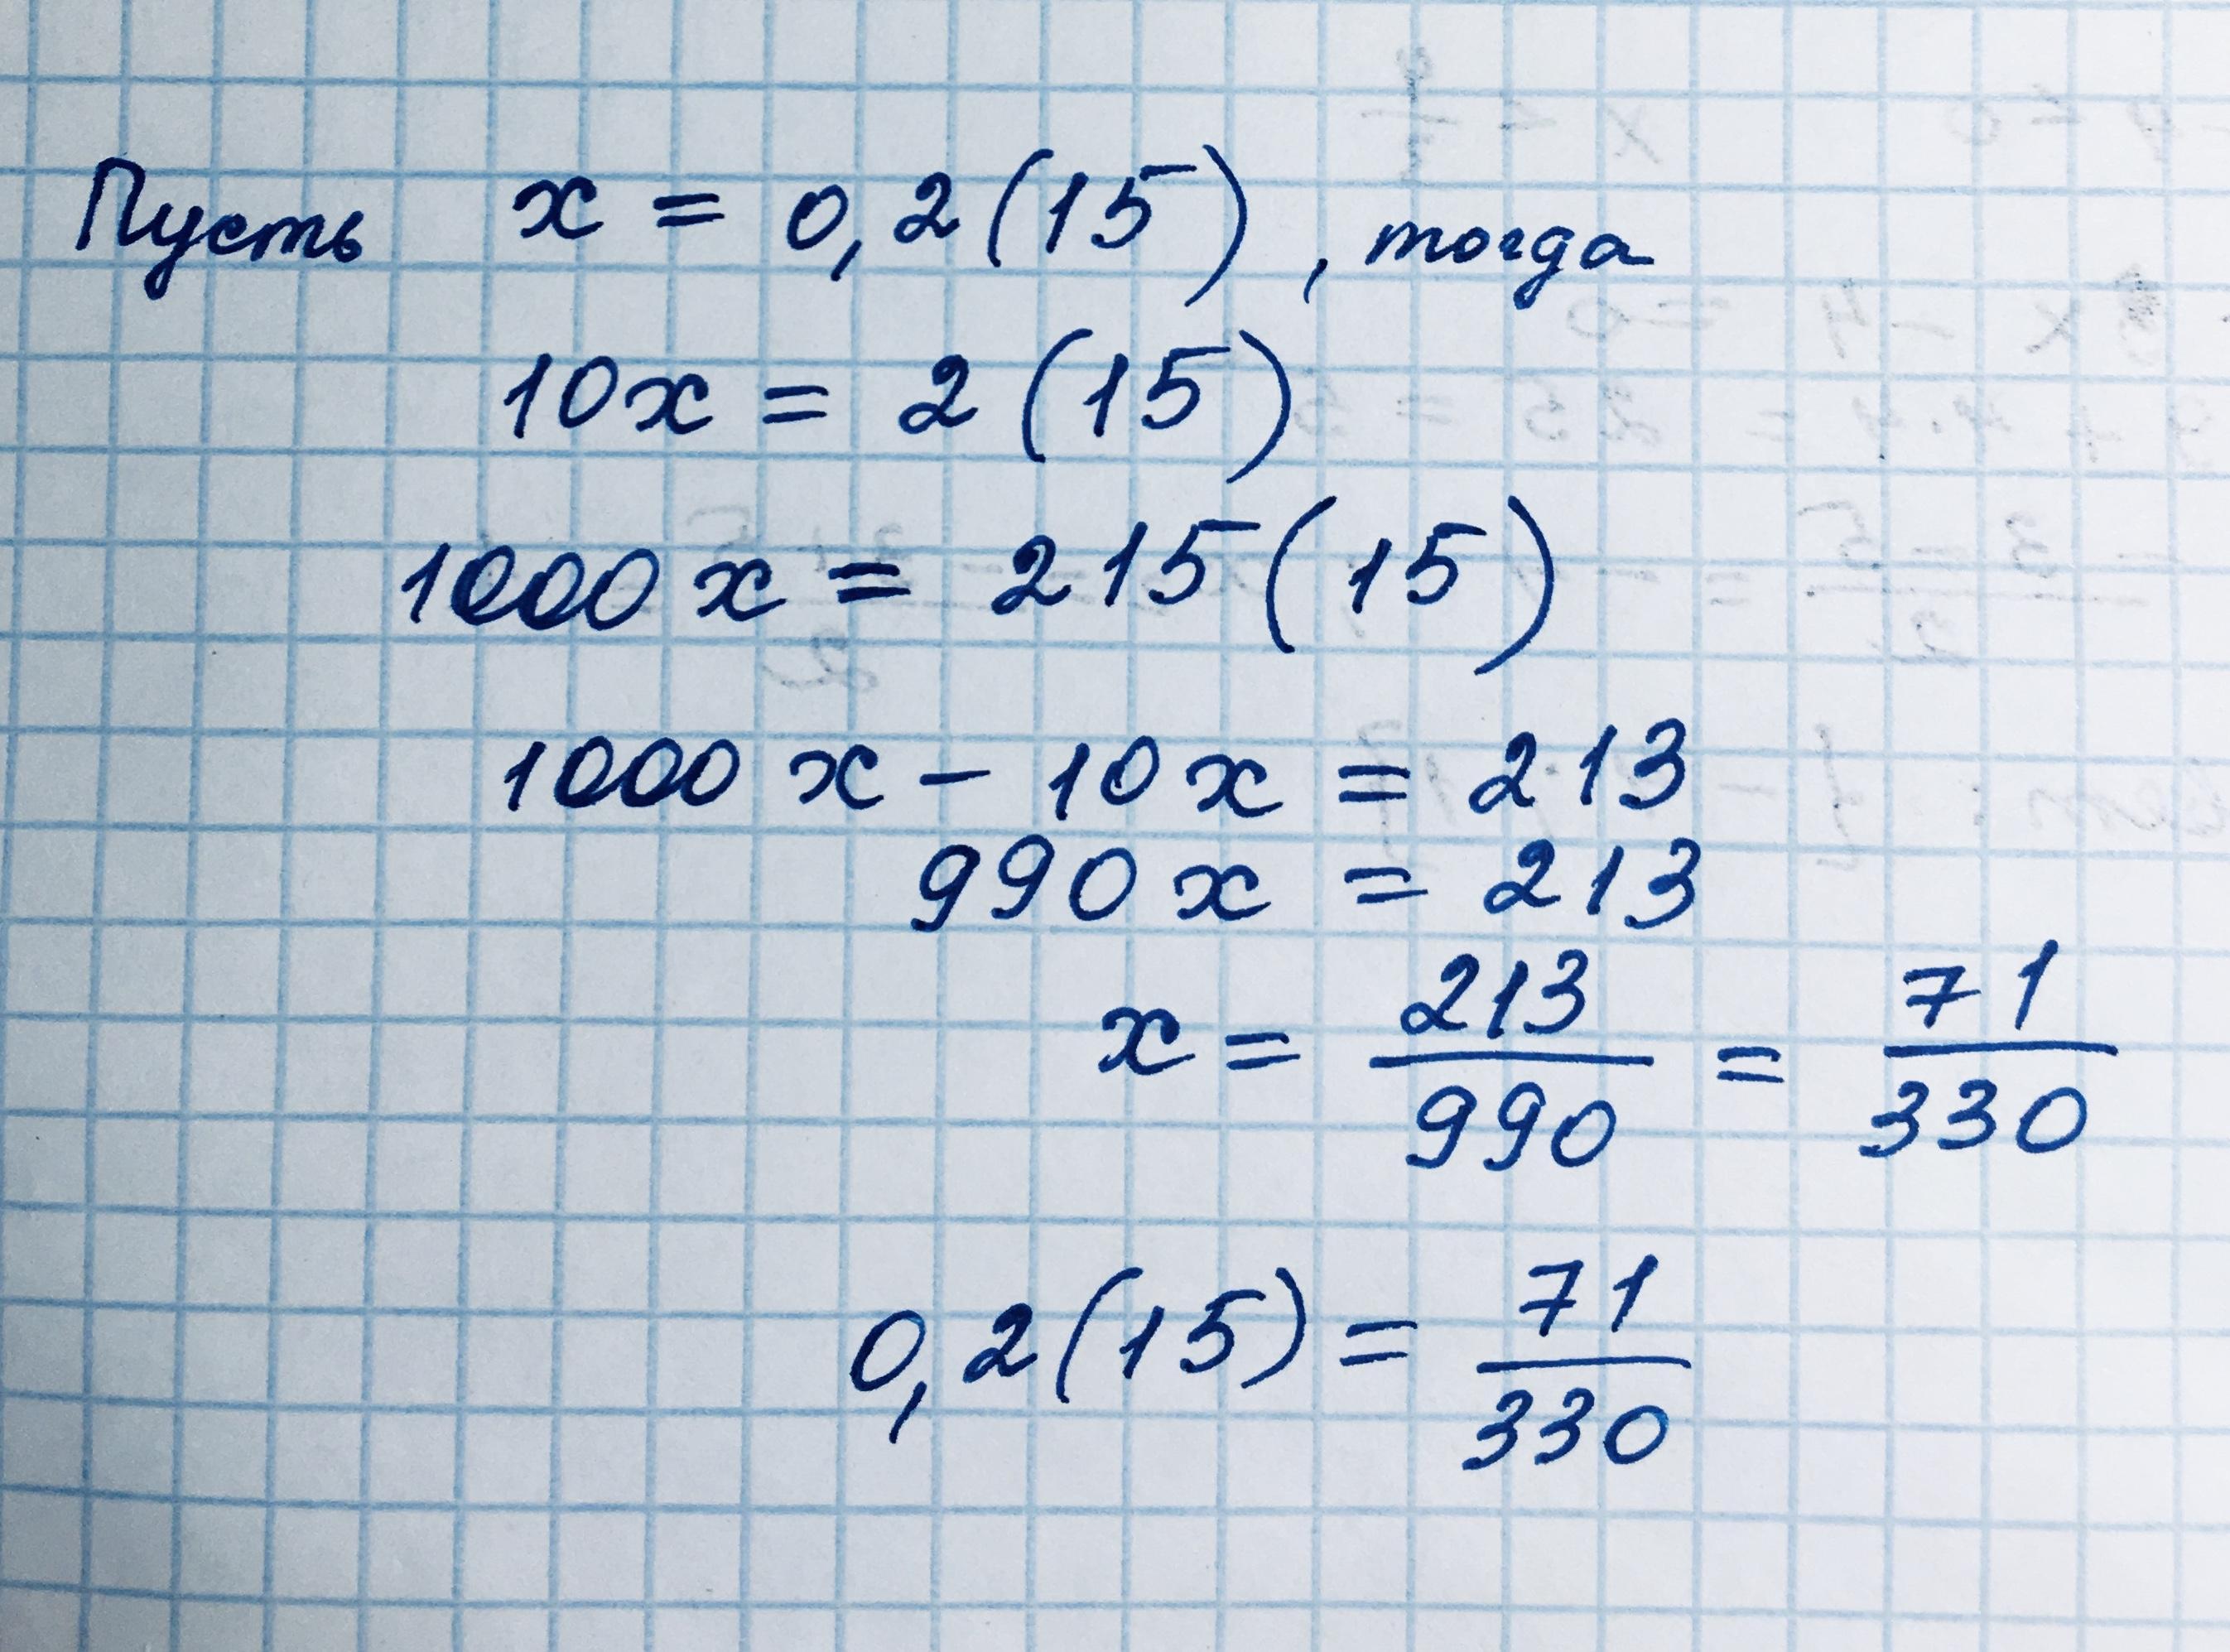 Пусть x = 0,2(15), тогда
10x = 2(15)
1000x = 215(15)
1000x - 10x = 213
990x = 213
x = 213/990 = 71/330
0,2(15) = 71/330